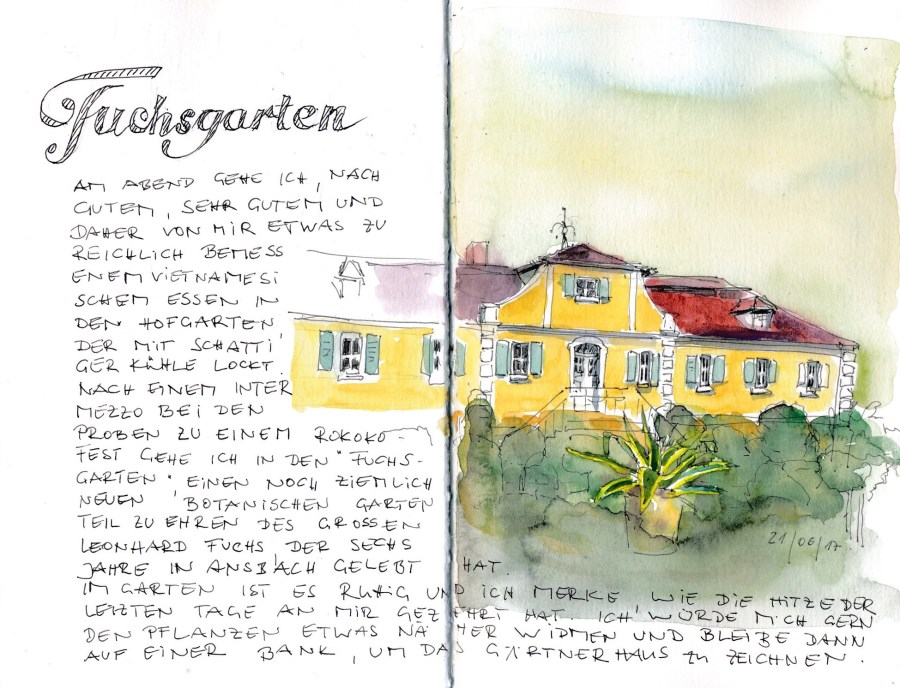 Fuchsgarten
AM ABEND GEHE ICH, NACH
GUTEM, SEHR GUTEM UND
DAHER VON MIR ETWAS ZU
REICHLICH BEMESS
ENEM VIETNAMESI
SCHEM ESSEN IN
DEN HOFGARTEN
DER MIT SCHATTI'
GER KÜHLE LOCKT.
NACH EINEM INTER
MEZZO BEI DEN
PROBEN ZU EINEM ROKOKO-
FEST GEHE ICH IN DEN "FUCHS-
GARTEN" EINEN NOCH ZIEMLICH
NEUEN BOTANISCHEN GARTEN
TEIL ZU EHREN DES GROSSEN
LEONHARD FUCHS, DER SECHS
JAHRE IN ANSBACH GELEBT HAT.
IM GARTEN IST ES RUHIG UND ICH MERKE WIE DIE HITZE DER
LETZTEN TAGE AN MIR GEZEHRT HAT. ICH WÜRDE MICH GERN
DEN PFLANZEN ETWAS NÄHER WIDMEN UND BLEIBE DANN
AUF EINER BANK, UM DAS GÄRTNERHAUS ZU ZEICHNEN.
21/06/17